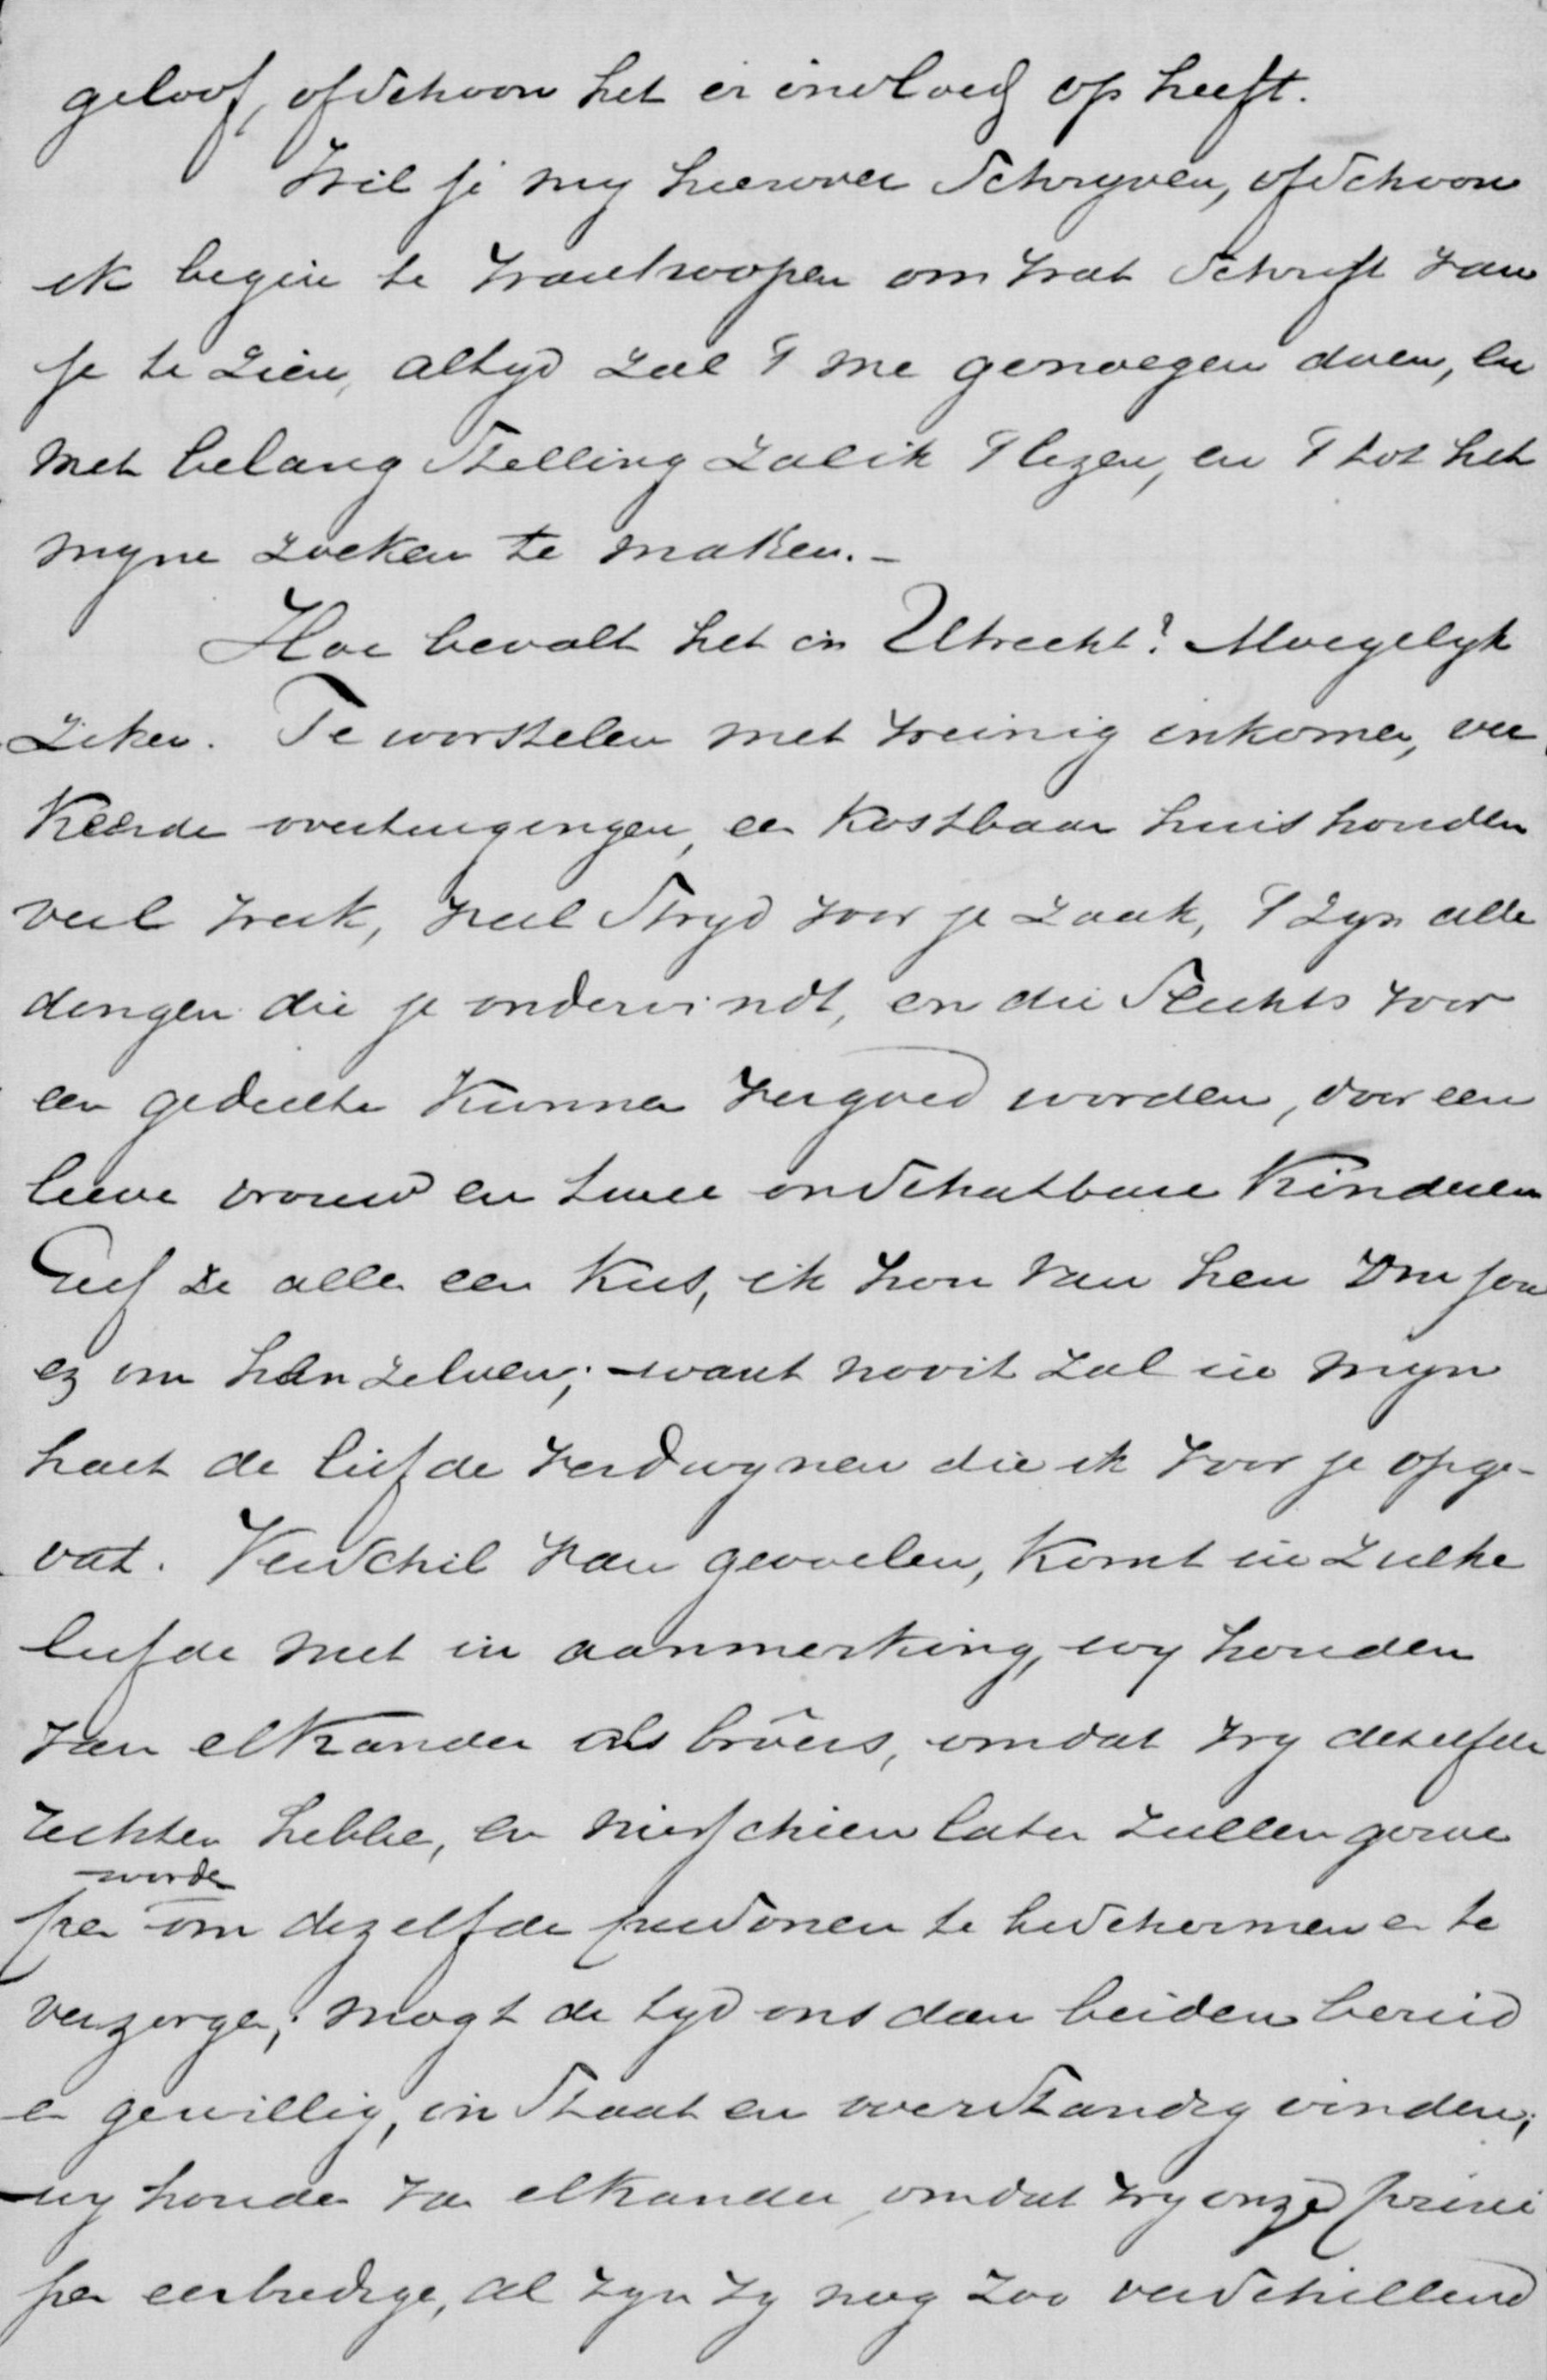 geloof, ofschoon het er invloed op heeft.
Wil je my hierover schryven, ofschoon
ik begin te wanhoopen om wat schrift van
je te zien, altyd zal 't me genoegen doen, en
met belangstelling zal ik 't lezen, en 't tot het
myne zoeken te maken. –
Hoe bevalt het in Utrecht? Moeyelyk
zeker. Te worstelen met weinig inkomen, ver
keerde overtuigingen, een kostbaar huishouden
veel werk, veel stryd voor je zaak, 't zyn alle
dingen die je ondervindt, en die slechts voor
een gedeelte kunnen vergoed worden, door een
lieve vrouw en twee onschatbare kinderen
Geef ze alle een kus, ik hou van hen om jou
en om hen zelven; want nooit zal in myn
hart de liefde verdwynen die ik voor je opge-
vat. Verschil van gevoelen, komt in zulke
liefde niet in aanmerking, wy houden
van elkander als broêrs, omdat wy dezelfde
rechten hebben, en misschien later zullen geroe
worden
pen om dezelfde personen te beschermen en te
verzorgen; mogt de tyd ons dan beiden bereid
en gewillig, in staat en verstandig vinden;
wy houden van elkander omdat wy onze princi
pen eerbiedige, al zyn zy nog zoo verschillend